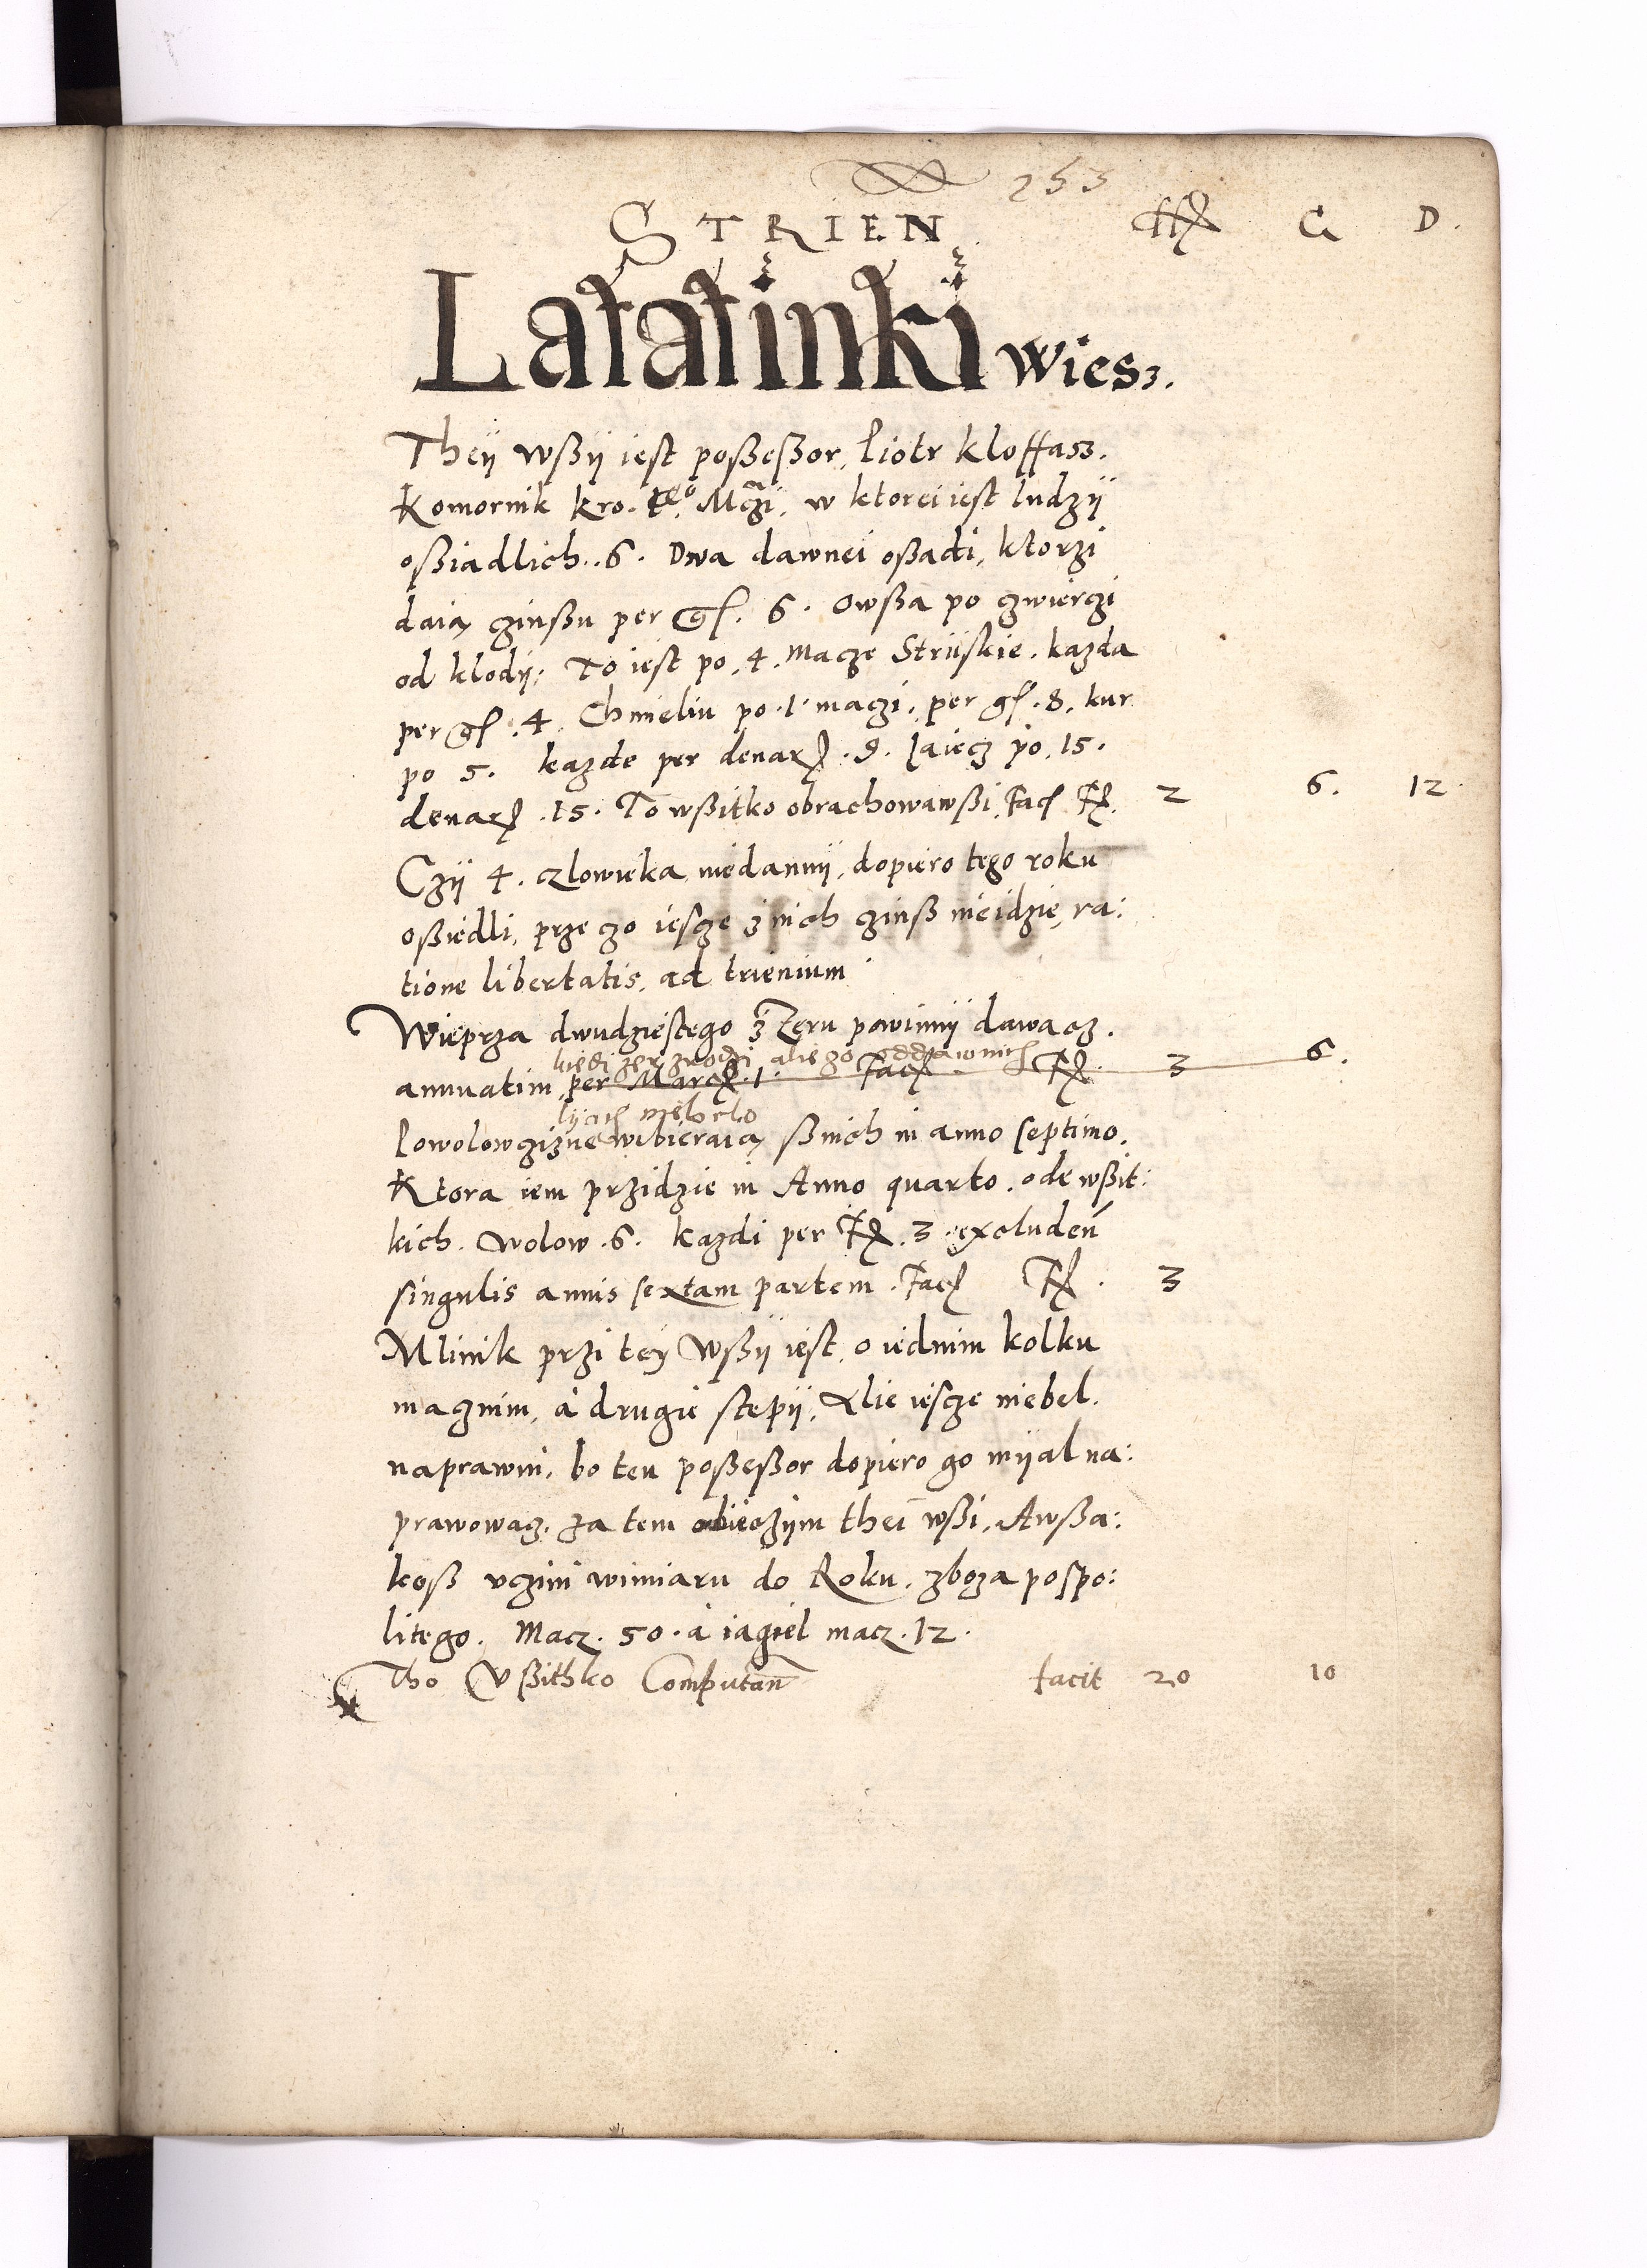 253
STRIEN ffl G D.
Latatinki Wiesz.
Theÿ wßÿ iest poßeßor, Piotr Kloffasz.
Komornik Kro. Mczi, w ktorei iest ludzÿ
oßiadlich..6. Dwa dawnei oßadi, ktorzi
daią czinßu per gſ. 6. Owßa po czwierczi
od klodÿ, To iest po .4. Macze Strÿskie. kazda
per gſ .4. Chmieliu po .1. maczi, per gſ .8. kur
po 5. kazde per denarȝ .9. Jaiecz po .15.
denarȝ .15. To wßitko obrachowawßi, Facſ Fl. 2 6. 12
Czÿ 4. czlowieka niedawnÿ, dopiero tego roku
oßiedli, prze czo iescze z nich czinß nieidzie, ra:
tione libertatis, ad trienium
Wieprza dwudziestego z Zeru powinnÿ dawacz.
kiedi zer zrodzi aliezo
annuatim per Marcȝ .1. Facſ Fl. 3 6.
niebelo
Powolowcziznę wibieraią ßnich in anno septimo.
Ktora iem przidzie in Anno quarto. ode wßit:
kich. wolow .6. kazdi per Fl .3. excluden
singulis annis sextam partem. Facſ Fl. 3
Mlinik przi tey Wßÿ iest, o iednim kolku
mącznim, à drugie stepÿ, Alie iescze niebel.
naprawni, bo ten poßeßor dopiero go mÿal na:
prawowacz. za tem obieczim thei wßi, Awßa:
koß vczini wimiaru do Roku, zboza pospo:
litego. Macz. 50. à iagiel macz .12.
Tho Vßithko Computan facit 20 10